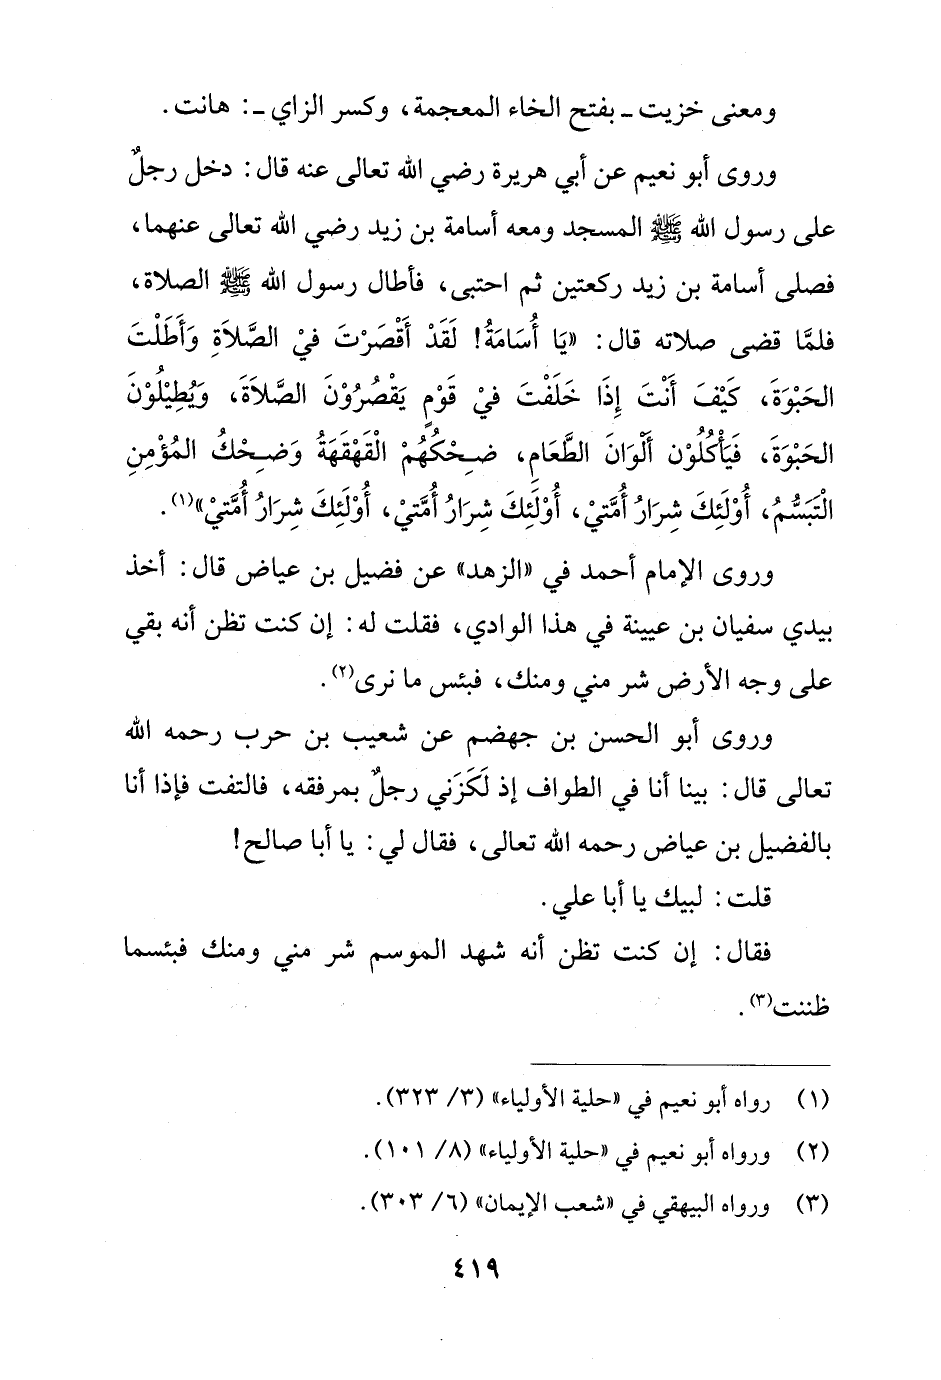 ومعنى خزيت ـ بفتح الخاء المعجمة، وكسر الزاي ـ: هانت.
وروى أبو نعيم عن أبي هريرة رضي الله تعالى عنه قال: دخل رجلٌ
على رسول الله ﷺ المسجد ومعه أسامة بن زيد رضي الله تعالى عنهما،
فصلى أسامة بن زيد ركعتين ثم احتبى، فأطال رسول الله ﷺ الصلاة،
فلمَّا قضى صلاته قال: «يَا أُسَامَةُ! لَقَدْ أَقْصَرْتَ فيْ الصَّلاَةِ وَأَطَلْتَ
الحَبْوَةَ، كَيْفَ أَنْتَ إِذَا خَلَفْتَ فيْ قَوْمٍ يَقْصُرُوْنَ الصَّلاَةَ، وَيُطِيْلُوْنَ
الحَبْوَةَ، فَيَأْكُلُوْن أَلْوَانَ الطَّعَامِ، ضِحْكُهُمْ الْقَهْقَهَةُ وَضِحْكُ المُؤْمِنِ
الْتَبَسُّمُ، أُوْلَئِكَ شِرَارُ أُمَّتيْ، أُوْلَئِكَ شِرَارُ أُمَّتيْ، أُوْلَئِكَ شِرَارُ أُمَّتيْ»(١).
وروى الإمام أحمد في «الزهد» عن فضيل بن عياض قال: أخذ
بيدي سفيان بن عيينة في هذا الوادي، فقلت له: إن كنت تظن أنه بقي
على وجه الأرض شر مني ومنك، فبئس ما نرى(٢).
وروى أبو الحسن بن جهضم عن شعيب بن حرب رحمه الله
تعالى قال: بينا أنا في الطواف إذ لَكَزَني رجلٌ بمرفقه، فالتفت فإذا أنا
بالفضيل بن عياض رحمه الله تعالى، فقال لي: يا أبا صالح!
قلت: لبيك يا أبا علي.
فقال: إن كنت تظن أنه شهد الموسم شر مني ومنك فبئسما
ظننت(٣).
(١) رواه أبو نعيم في «حلية الأولياء» (٣/ ٣٢٣).
(٢) ورواه أبو نعيم في «حلية الأولياء» (٨/ ١٠١).
(٣) ورواه البيهقي في «شعب الإيمان» (٦/ ٣٠٣).
٤١٩